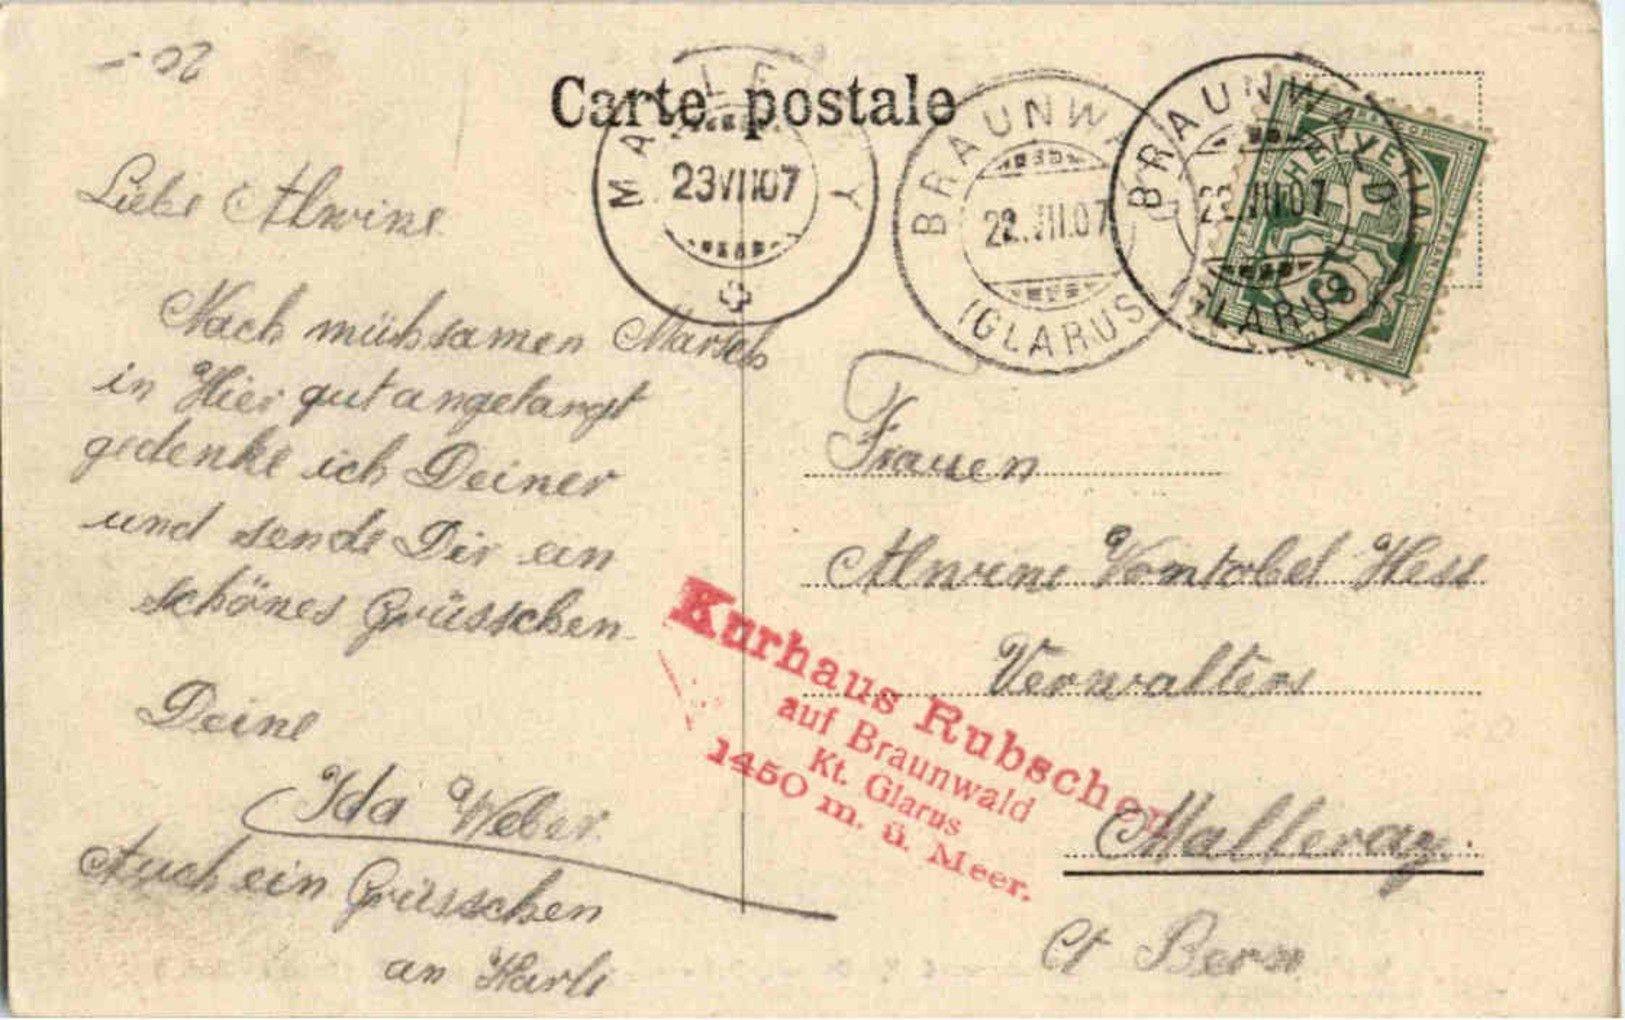 Carte postale
MALLERAY
23 VII 07
BRAUNWALD
22.VII.07
(GLARUS)
BRAUNWALD
22.VII.07
(GLARUS)
HELVETIA
FRANCO
5
Liebe Alwine
Nach mühsamen Marsch
in Hier gut angelangt
gedenke ich Deiner
und sende Dir ein
schönes Grüsschen
Deine
Ida Weber.
Auch ein Grüsschen
an Karli
Frauen
Alwine Vontobel Hess
Verwalters
Malleray.
Ct Bern
Kurhaus Rubschen
auf Braunwald
Kt. Glarus
1450 m. ü. Meer.